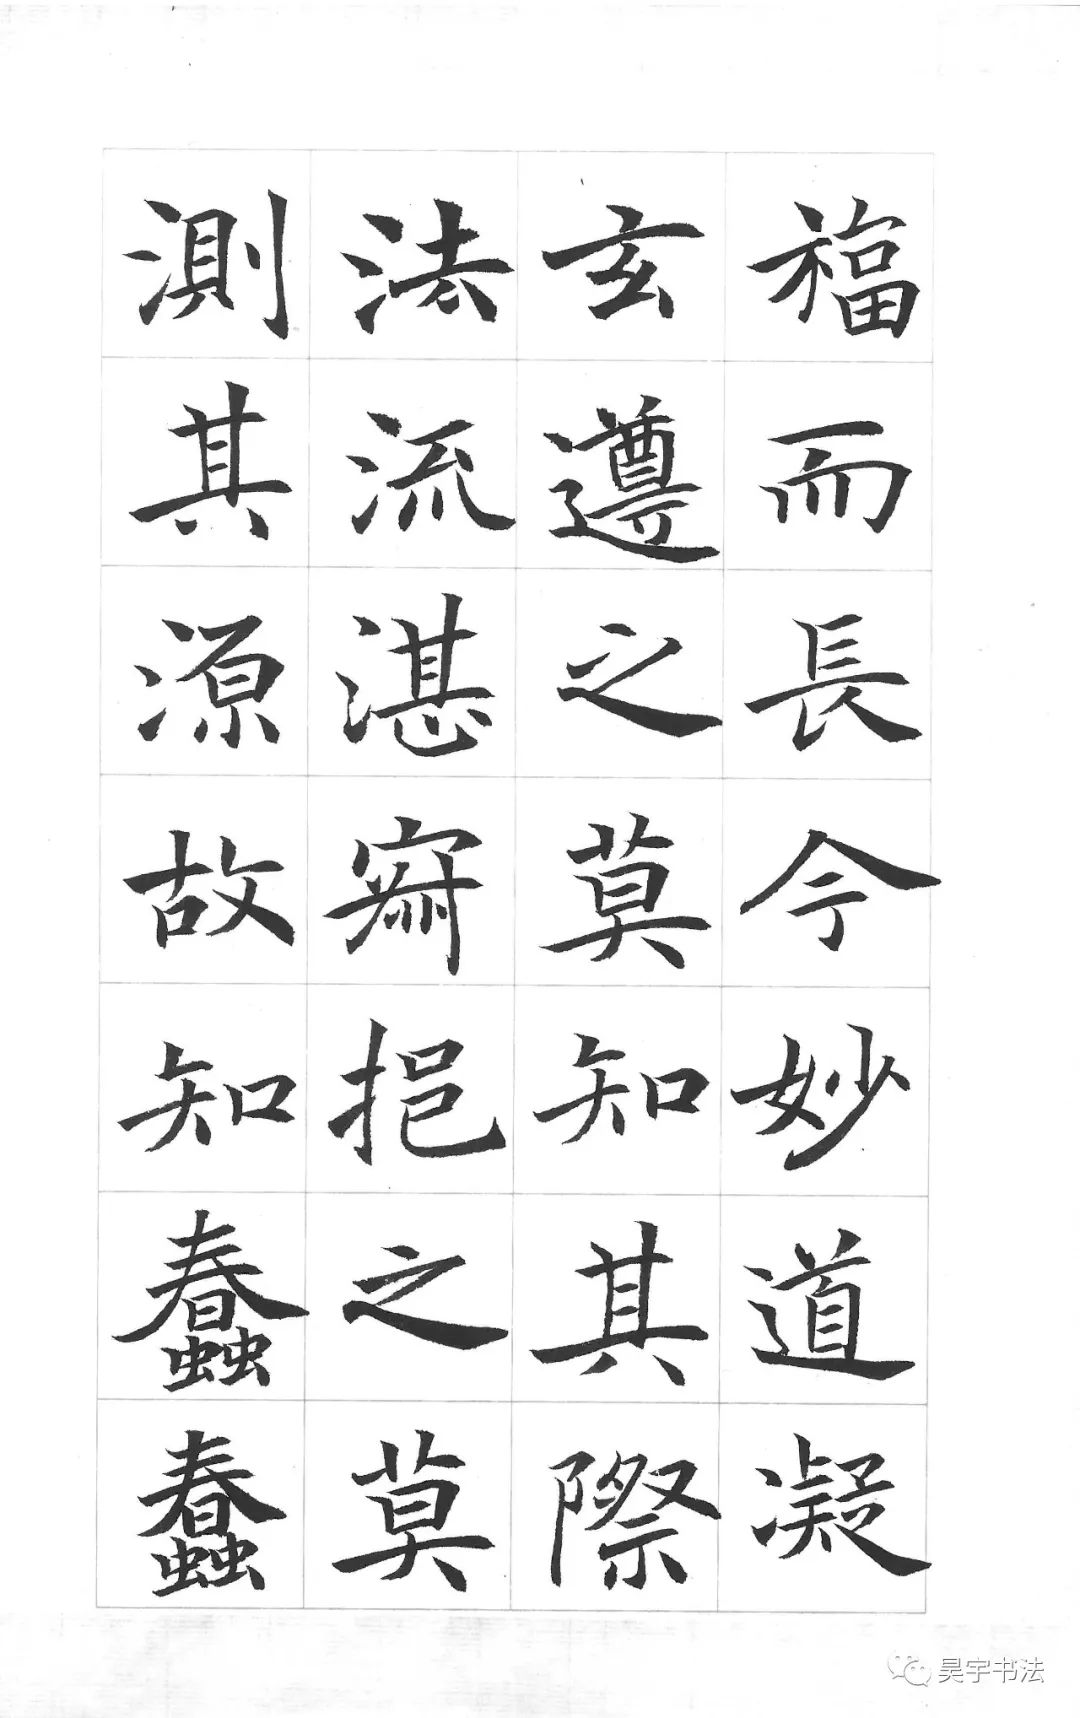 福而長今妙道凝
玄遵之莫知其際
法流湛寂挹之莫
測其源故知蠢蠢
昊宇书法